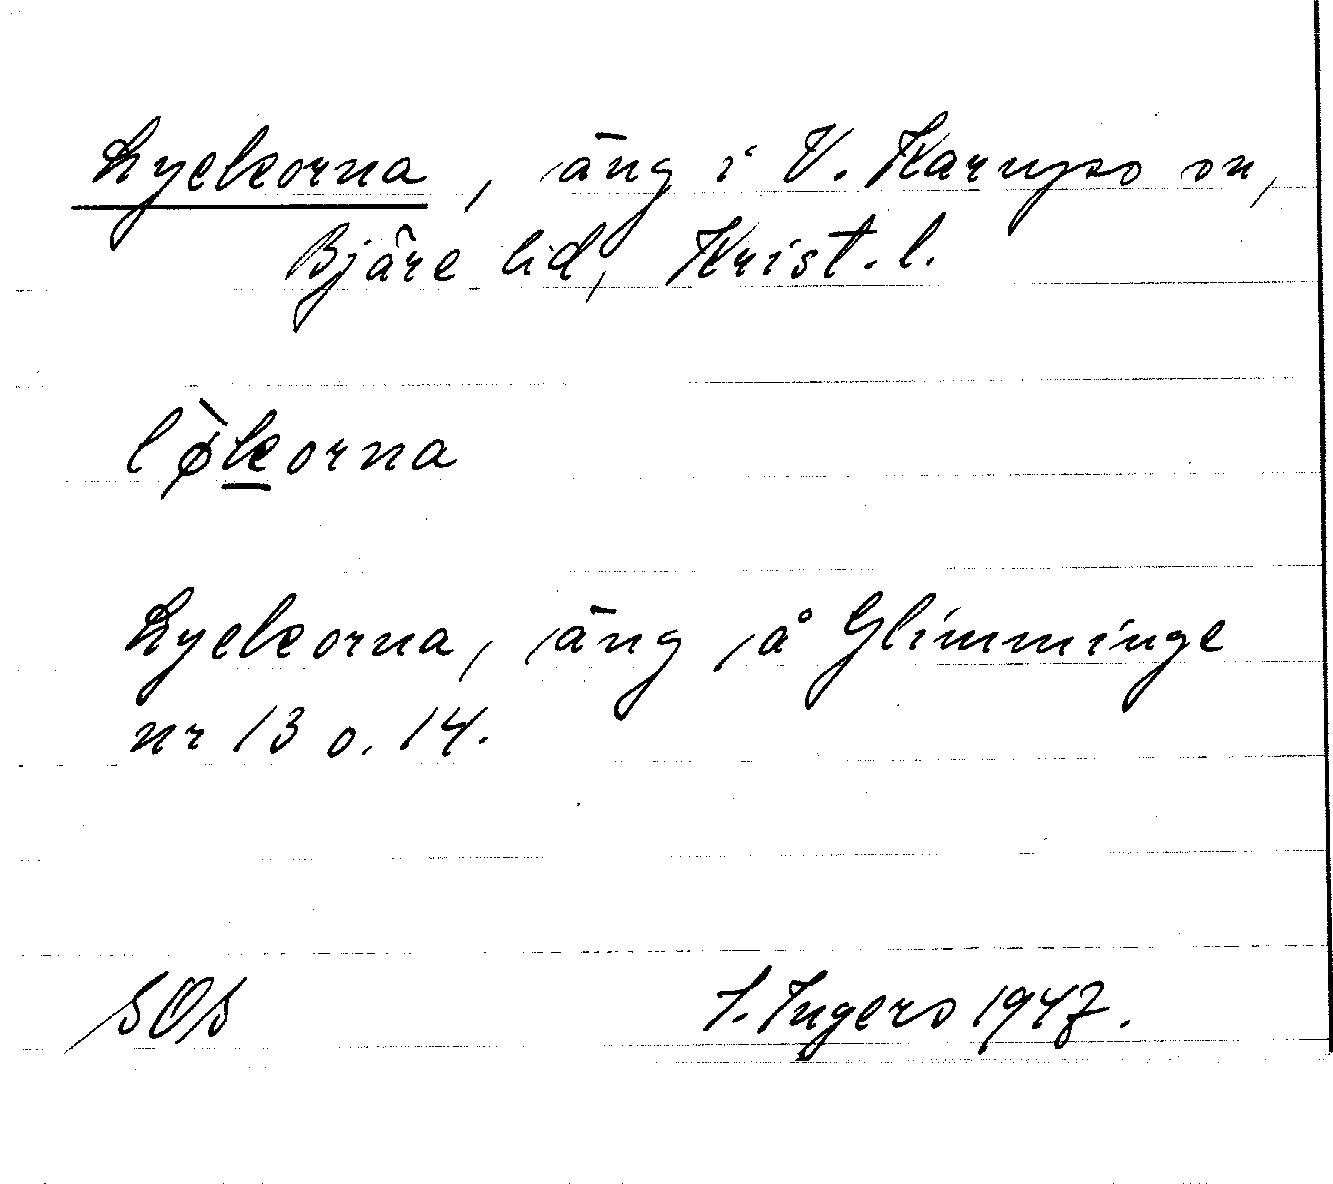 Lyckorna, äng i V. Karups sn,
Bjäre hd, Krist. l.
lø̀korna
Lyckorna, äng å Glimminge
nr 13 o. 14.
SOS I. Ingers 1947.